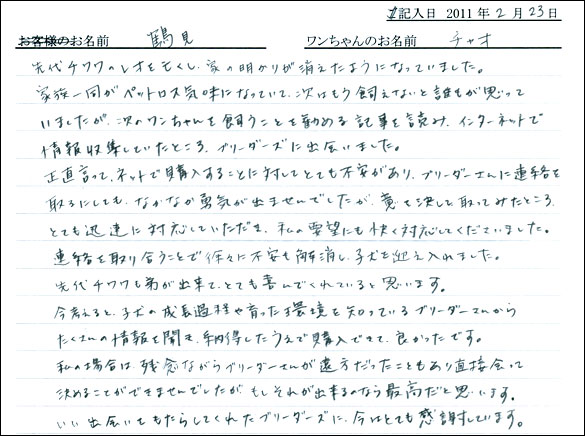 記入日 2011年2月23日
お客様のお名前 鶴見 ワンちゃんのお名前 チャオ
先代チワワのレオを亡くし、家の明かりが消えたようになっていました。
家族一同がペットロス気味になっていて、次はもう飼えないと誰もが思って
いましたが、次のワンちゃんを飼うことを勧める記事を読み、インターネットで
情報収集していたところ、ブリーダーズに出会いました。
正直言って、ネットで購入することに対してとても不安があり、ブリーダーさんに連絡を
取るにしても、なかなか勇気が出ませんでしたが、意を決して取ってみたところ、
とても迅速に対応していただき、私の要望にも快く対応してくださいました。
連絡を取り合うことで徐々に不安も解消し、子犬を迎え入れました。
先代チワワも弟が出来て、とても喜んでくれていると思います。
今考えると、子犬の成長過程や育った環境を知っているブリーダーさんから
たくさんの情報を聞き、納得したうえで購入できて、良かったです。
私の場合は、残念ながらブリーダーさんが遠方だったこともあり直接会って
決めることができませんでしたが、もしそれが出来るのなら最高だと思います。
いい出会いをもたらしてくれたブリーダーズに、今はとても感謝しています。